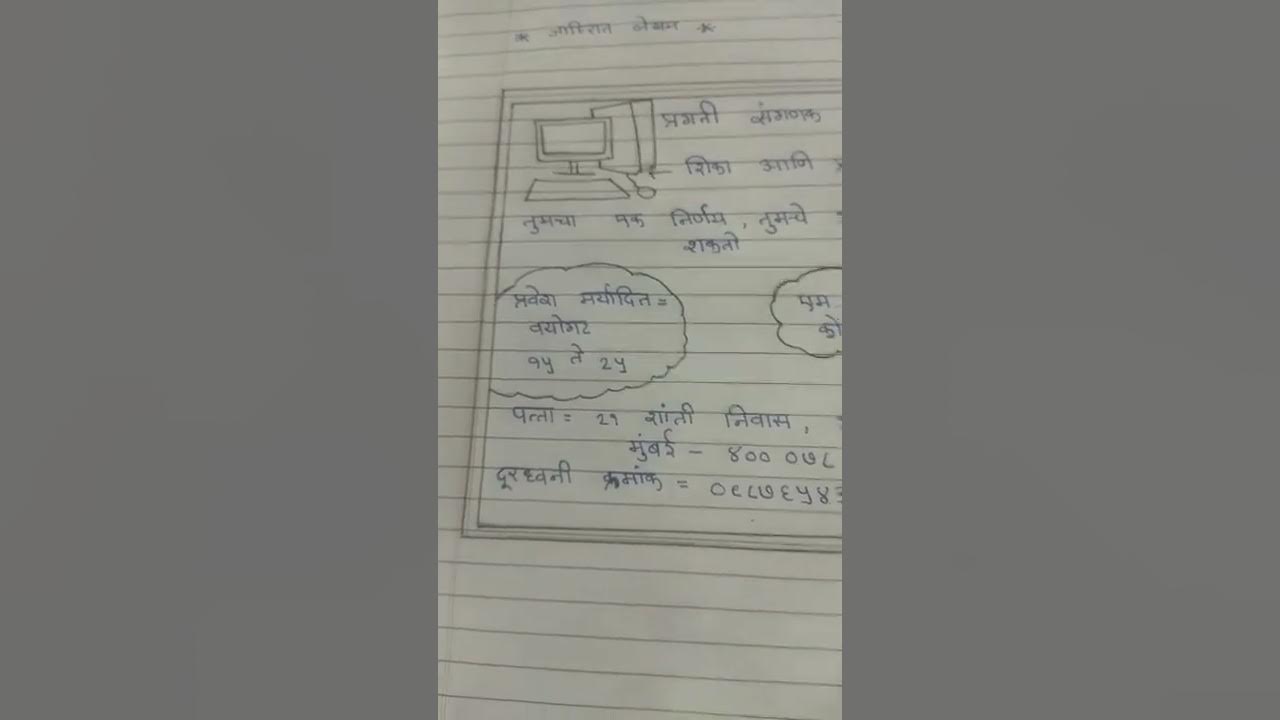 * जाहिरात लेखन *
प्रगती संगणक
शिका आणि
तुमचा एक निर्णय, तुमचे
शकतो
प्रवेश मर्यादित =
वयोगट
१५ ते २५
एम
को
पत्ता = २१ शांती निवास,
मुंबई - ४०० ०७८
दूरध्वनी क्रमांक = ०९८७६५४३